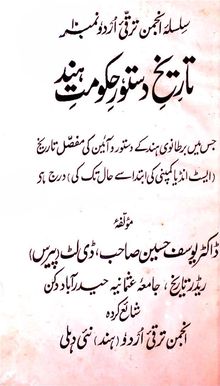 سلسلۂ انجمن ترقیٔ اُردو نمبر ۱۰
تاریخِ دستورِ حکومتِ ہند
جس میں برطانوی ہند کے دستور و آئین کی مفصّل تاریخ
(ایسٹ انڈیا کمپنی کی ابتدا سے حال تک کی) درج ہے
مؤلفۂ
ڈاکٹر یوسف حسین صاحب، ڈی لٹ (پیرس)
ریڈر تاریخ، جامعہ عثمانیہ حیدرآباد دکن
شائع کردہ
انجمن ترقیٔ اُردو (ہند) نئی دہلی